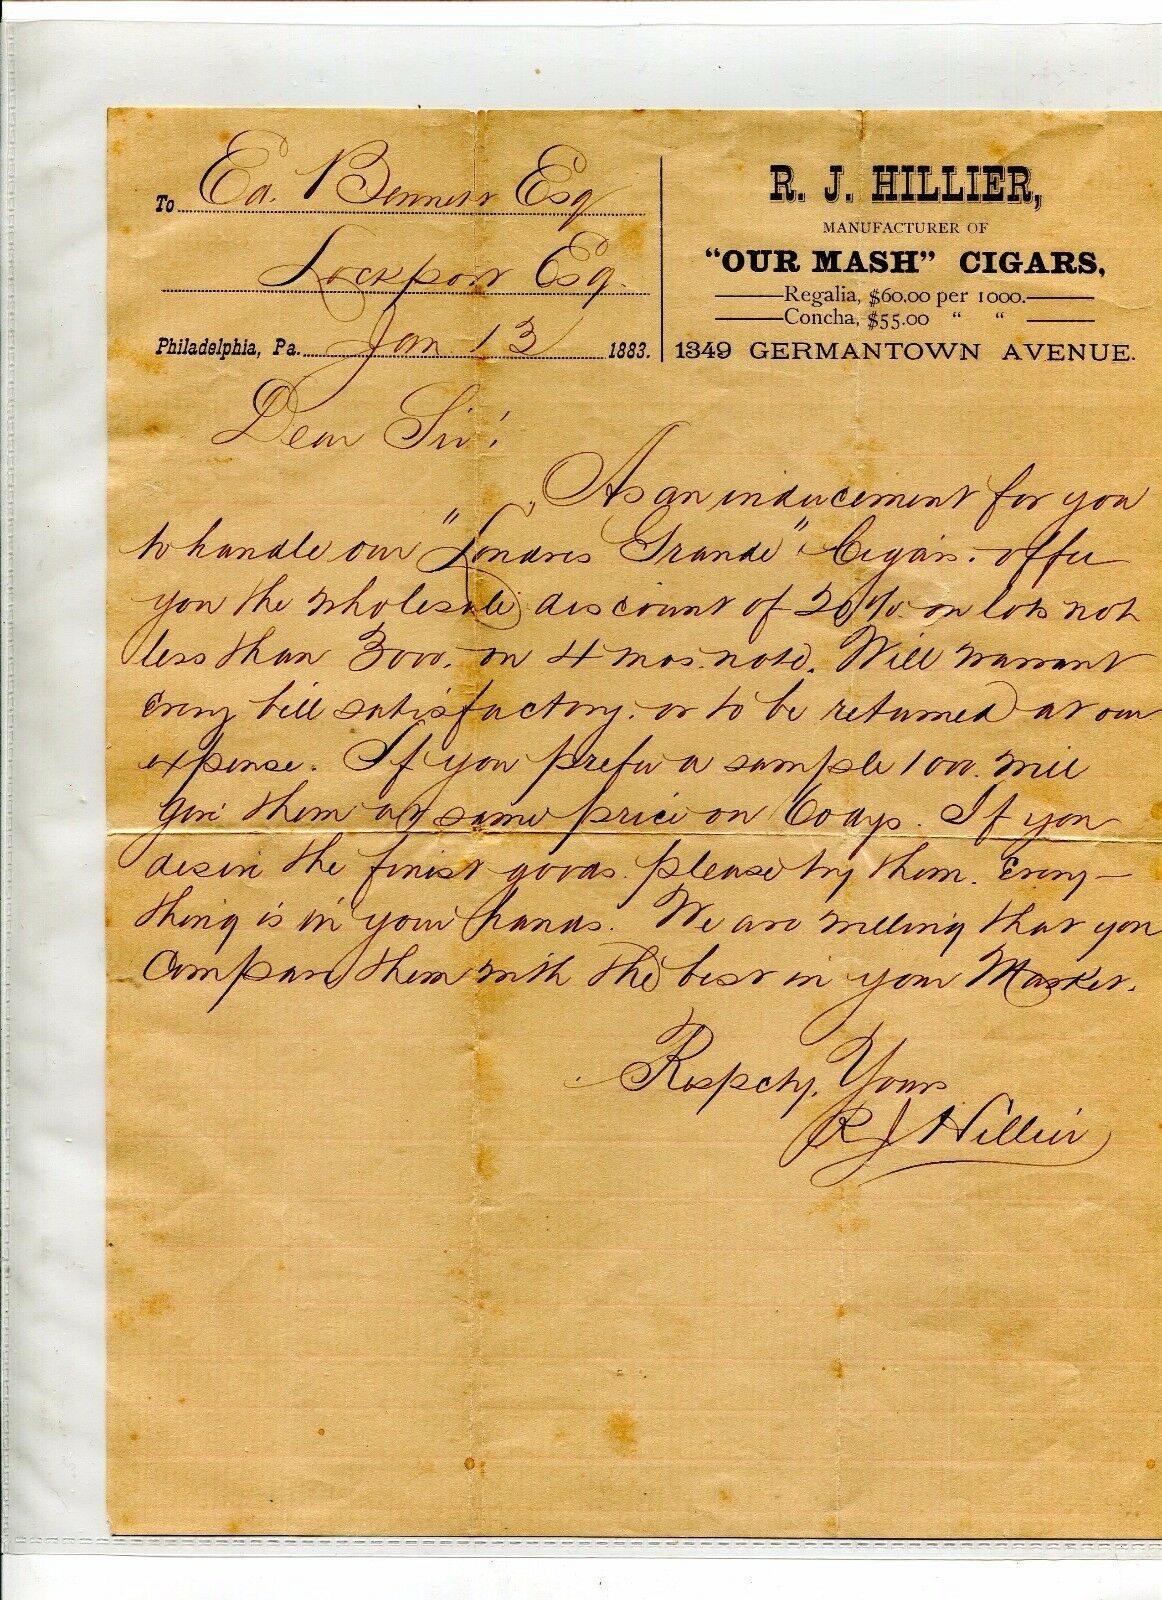 To Ed. Bennett Esq
Lockport Esq.
Philadelphia, Pa. Jan 13 1883.
R. J. HILLIER,
MANUFACTURER OF
"OUR MASH" CIGARS,
Regalia, $60.00 per 1000.
Concha, $55.00 " "
1349 GERMANTOWN AVENUE.
Dear Sir!
As an inducement for you
to handle our "Londres Grande" Cigars. offer
you the wholesale discount of 20%. on lots not
less than 3000. on 4 mos. note. Will warrant
Every bill satisfactory. or to be returned at our
expense. If you prefer a sample 1000. will
give them at same price on 60 dys. If you
desire the finest goods. please try them. Every-
thing is in your hands. We are willing that you
Compare them with the best in your Market.
Respcty. Yours
R J Hillier